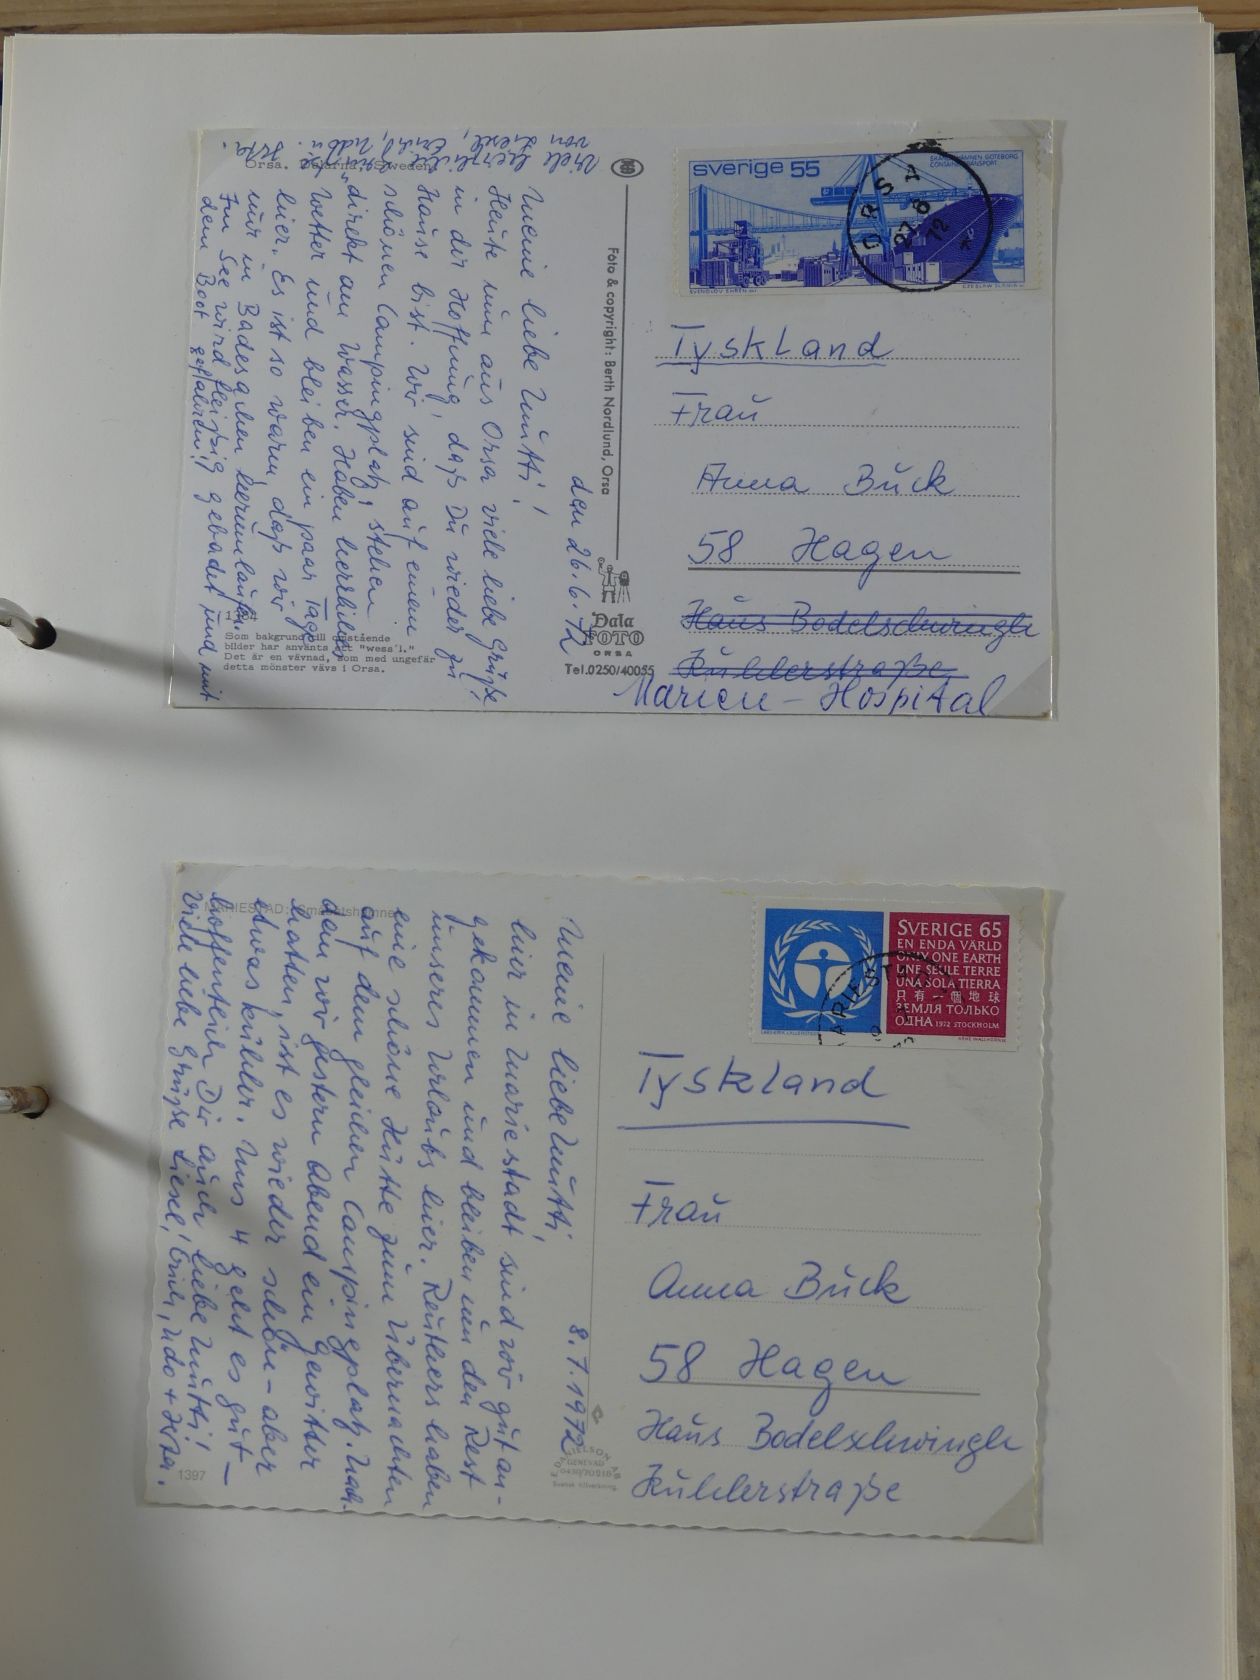 Orsa. Dalarna, Sweden
den 26.6.72
Meine liebe Mutti!
Heute nun aus Orsa viele liebe Grüße
in der Hoffnung, daß Du wieder zu
Hause bist. Wir sind auf einem
schönen Campingplatz, stehen
direkt am Wasser. Haben herrliches
Wetter und bleiben ein paar Tage
hier. Es ist so warm, daß wir
nur in Badesachen herumlaufen.
Im See wird fleißig gebadet und mit
dem Boot gefahren!!
Viele herzliche Grüße
von Liesel, Erich, Udo u.
Jutta.
1104
Som bakgrund till omstående
bilder har använts ett "wess'l."
Det är en vävnad, som med ungefär
detta mönster vävs i Orsa.
Foto & copyright: Berth Nordlund, Orsa
Dala
FOTO
ORSA
Tel.0250/40055
sverige 55
SKANDIAHAMNEN GÖTEBORG
CONTAINERTRANSPORT
SVENOLOV EHRÉN del.
CZESLAW SLANIA sc.
ORSA
27 6
72
Tyskland
Frau
Anna Buck
58 Hagen
Haus Bodelschwingh
Kuhlerstraße
Marien-Hospital
MARIESTAD: Småbåtshamnen
8.7.1972
Meine liebe Mutti,
hier in Mariestadt sind wir gut an-
gekommen und bleiben nun den Rest
unseres Urlaubs hier. Reuthers haben
eine schöne Hütte zum Übernachten
auf dem gleichen Campingplatz. Nach-
dem wir gestern Abend ein Gewitter
hatten, ist es wieder schön - aber
etwas kühler. Uns 4 geht es gut -
hoffentlich Dir auch liebe Mutti!
Viele liebe Grüße Liesel, Erich, Udo + Jutta.
1397
DANIELSON AB
GENEVAD
0430/70218
Svensk tillverkning
SVERIGE 65
EN ENDA VÄRLD
ONLY ONE EARTH
UNE SEULE TERRE
UNA SOLA TIERRA
只有一個地球
ЗЕМЛЯ ТОЛЬКО
ОДНА 1972 STOCKHOLM
ARNE WALLHORN SC
MARIESTAD
Tyskland
Frau
Anna Buck
58 Hagen
Haus Bodelschwingh
Kuhlerstraße